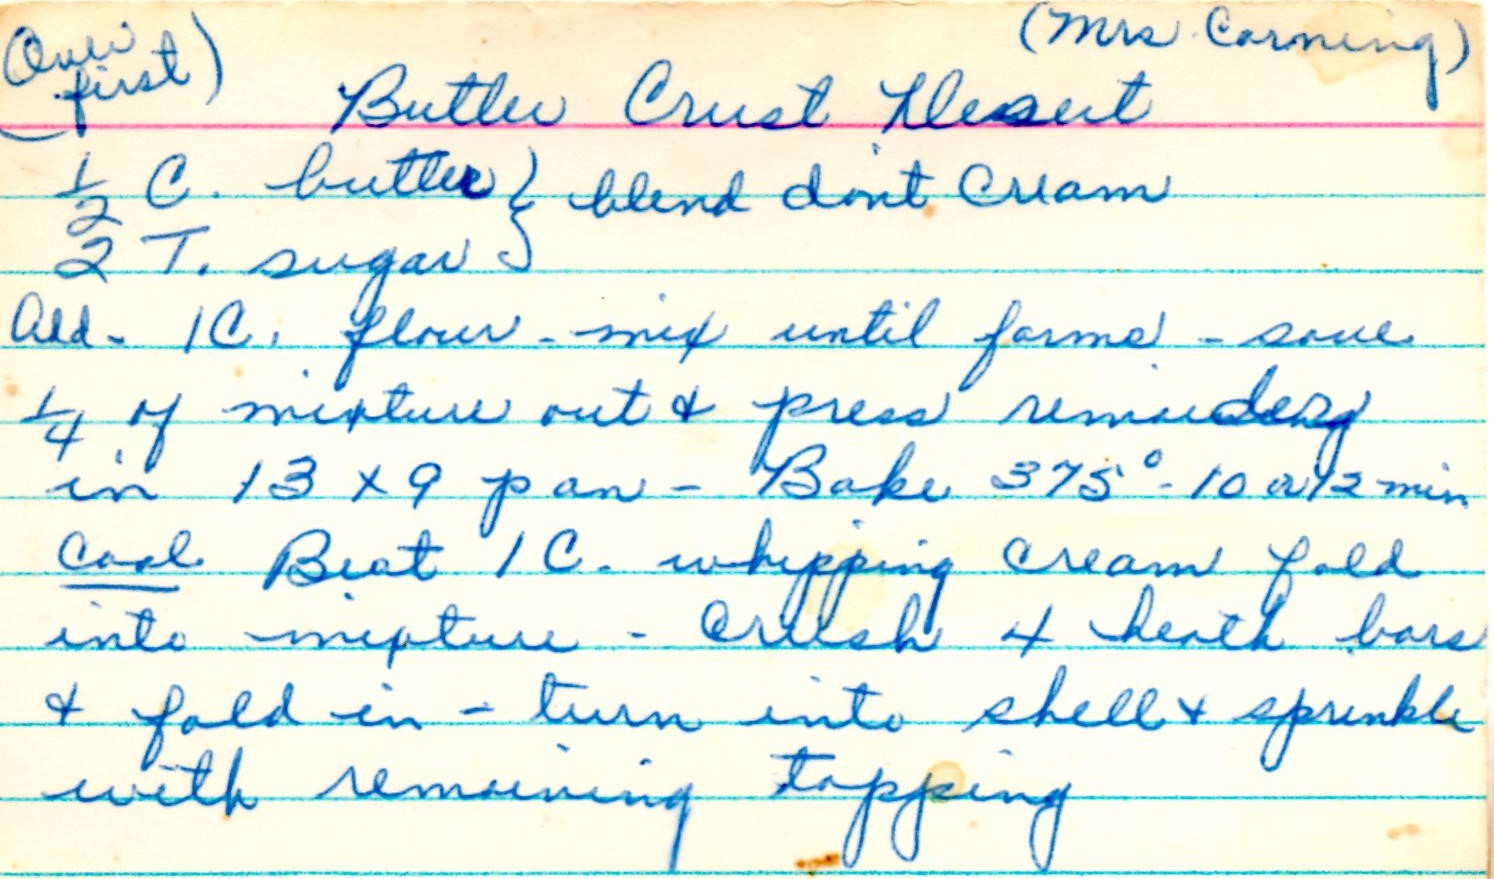 (Over (Mrs. Corning)
first)
Butter Crust Dessert
1/2 C. butter } blend don't Cream
2 T. sugar
Add - 1C. flour - mix until forms - save
1/4 of mixture out & press remaiderg
in 13 x 9 pan - Bake 375° - 10 or 12 min
Cool Beat 1 C. whipping cream fold
into mixture - Crush 4 heath bars
& fold in - turn into shell & sprinkle
with remaining topping